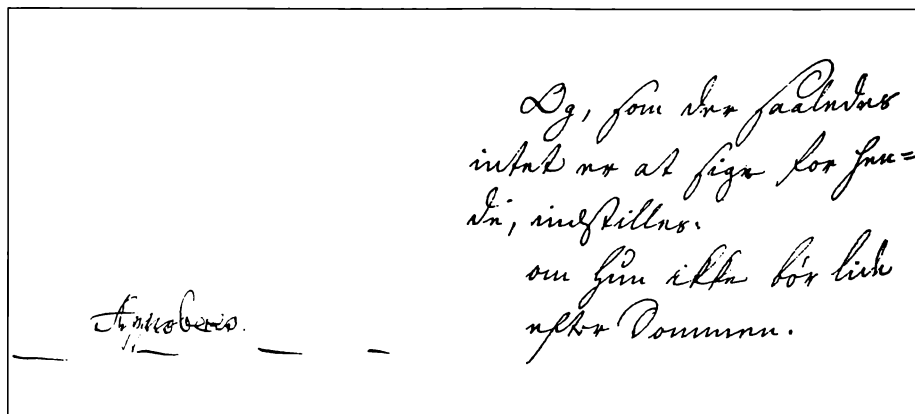 Og, som der saaledes
intet er at sige for hen=
de, indstilles.
om hun ikke bør lide
efter Dommen.
Approberes.